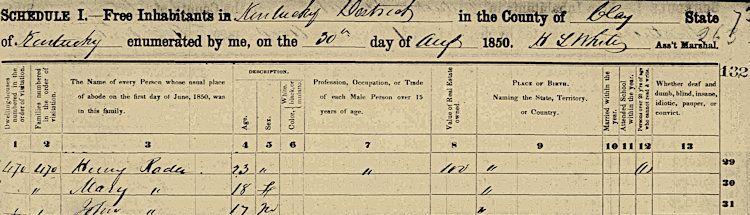 SCHEDULE I.—Free Inhabitants in Kentucky District in the County of Clay State
of Kentucky enumerated by me, on the 30th day of Aug 1850. H L White Ass't Marshal.
132
Dwelling-houses numbered in the order of visitation.
Families numbered in the order of visitation.
The Name of every Person whose usual place of abode on the first day of June, 1850, was in this family.
DESCRIPTION.
Age.
Sex.
White, black, or mulatto.
Color,
Profession, Occupation, or Trade of each Male Person over 15 years of age.
Value of Real Estate owned.
PLACE OF BIRTH.
Naming the State, Territory, or Country.
Married within the year.
Attended School within the year.
Persons over 20 y'rs of age who cannot read & write.
Whether deaf and dumb, blind, insane, idiotic, pauper, or convict.
1 2 3 4 5 6 7 8 9 10 11 12 13
470 470 Henry Rader 23 " " 100 " 29
" Mary " 18 f " 30
John " 17 m " 31